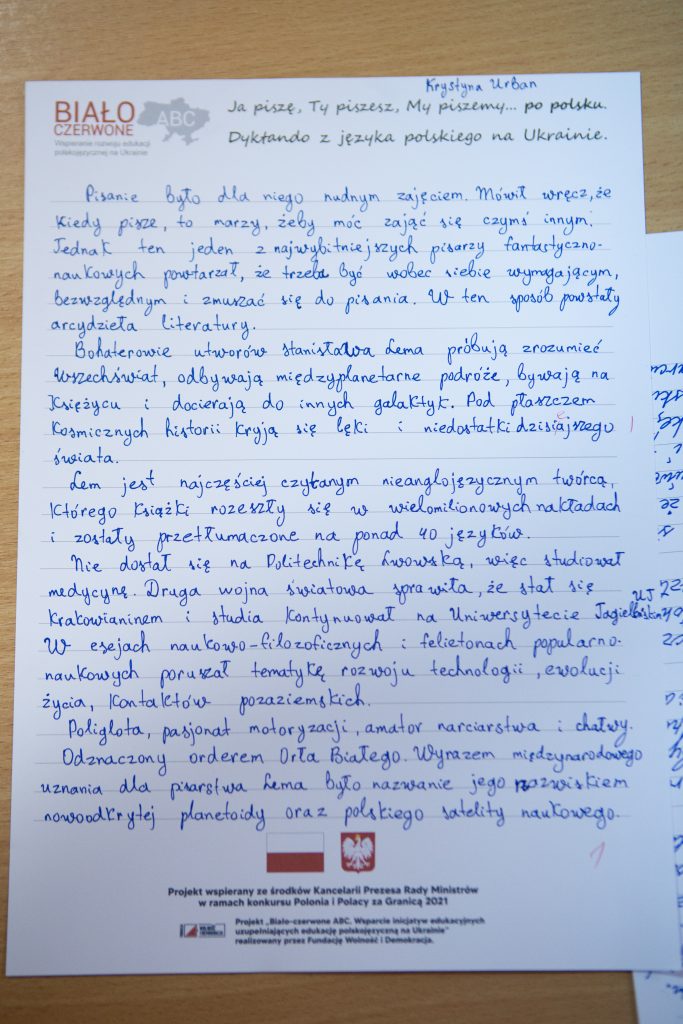 Krystyna Urban
BIAŁO
CZERWONE
ABC
Wspieranie rozwoju edukacji
polskojęzycznej na Ukrainie
Ja piszę, Ty piszesz, My piszemy... po polsku.
Dyktando z języka polskiego na Ukrainie.
Pisanie było dla niego nudnym zajęciem. Mówił wręcz, że
kiedy pisze, to marzy, żeby móc zająć się czymś innym.
Jednak ten jeden z najwybitniejszych pisarzy fantastyczno-
naukowych powtarzał, że trzeba być wobec siebie wymagającym,
bezwzględnym i zmuszać się do pisania. W ten sposób powstały
arcydzieła literatury.
Bohaterowie utworów Stanisława Lema próbują zrozumieć
Wszechświat, odbywają międzyplanetarne podróże, bywają na
Księżycu i docierają do innych galaktyk. Pod płaszczem
kosmicznych historii kryją się lęki i niedostatki dzisiajszego
świata.
Lem jest najczęściej czytanym nieanglojęzycznym twórcą,
którego książki rozeszły się w wielomilionowych nakładach
i zostały przetłumaczone na ponad 40 języków.
Nie dostał się na Politechnikę Lwowską, więc studiował
medycynę. Druga wojna światowa sprawiła, że stał się
krakowianinem i studia kontynuował na Uniwersytecie UJ
W esejach naukowo-filozoficznych i felietonach popularno-
naukowych poruszał tematykę rozwoju technologii, ewolucji
życia, kontaktów pozaziemskich.
Poliglota, pasjonat motoryzacji, amator narciarstwa i chałwy.
Odznaczony orderem Orła Białego. Wyrazem międzynarodowego
uznania dla pisarstwa Lema było nazwanie jego nazwiskiem
nowoodkrytej planetoidy oraz polskiego satelity naukowego.
1
Projekt wspierany ze środków Kancelarii Prezesa Rady Ministrów
w ramach konkursu Polonia i Polacy za Granicą 2021
Projekt „Biało-czerwone ABC. Wsparcie inicjatyw edukacyjnych
uzupełniających edukację polskojęzyczną na Ukrainie”
realizowany przez Fundację Wolność i Demokracja.